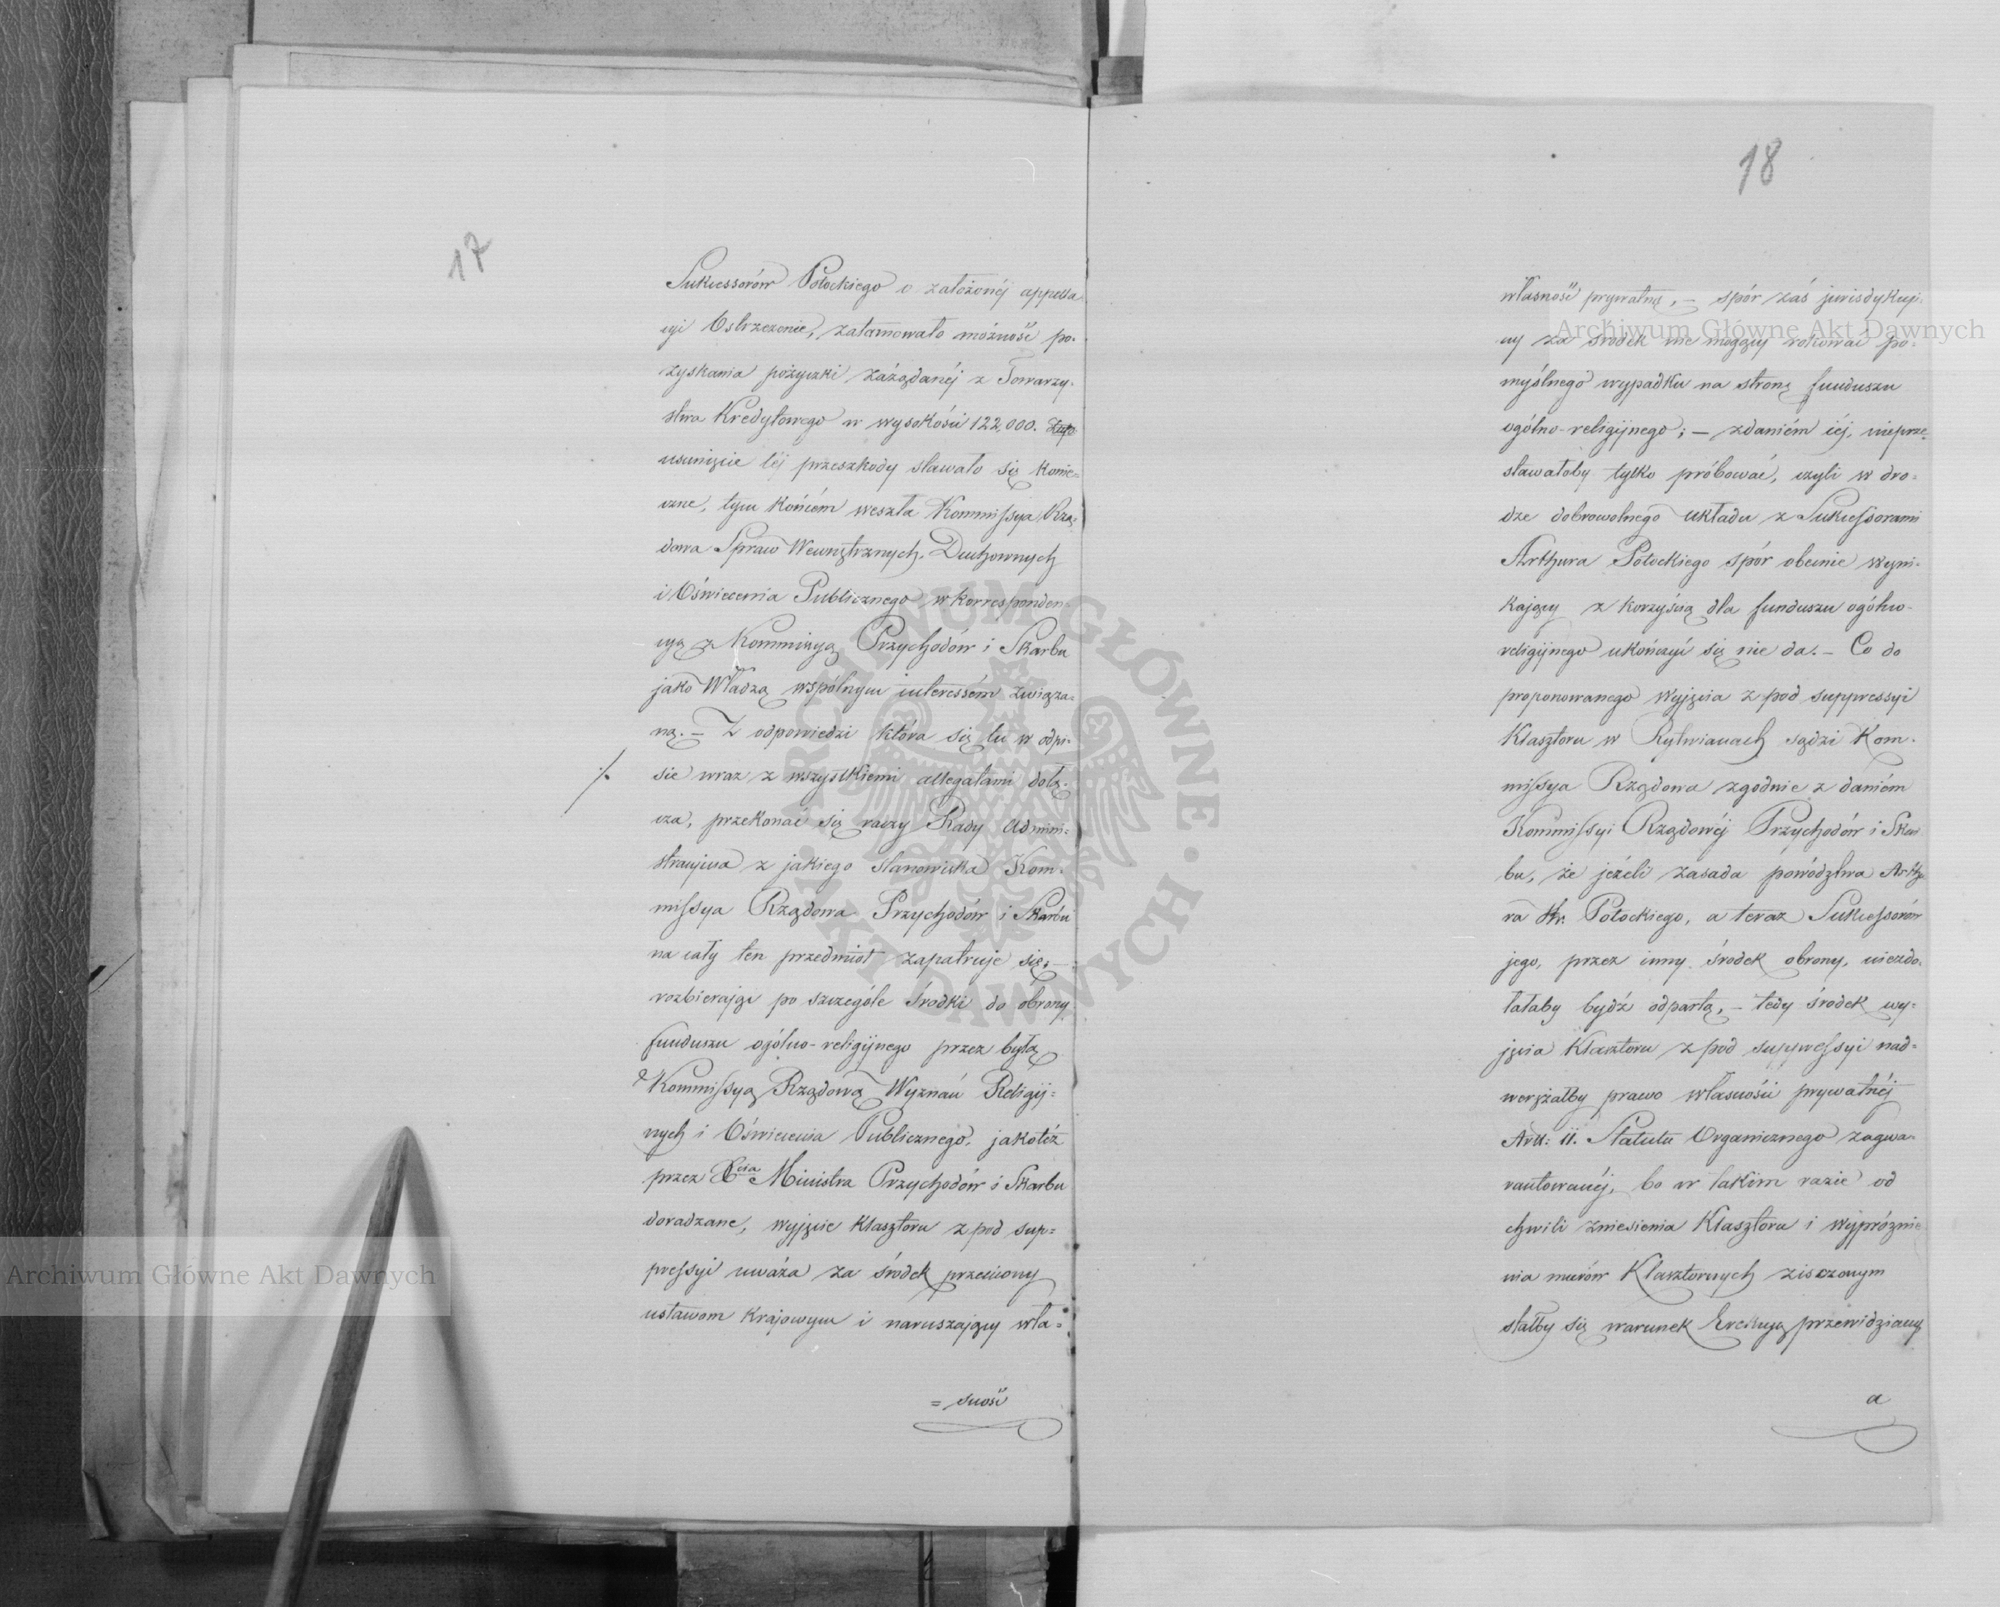 17
Sukcessorów Potockiego o założonéj appella
cyi Ostrzeżenie, zatamowało możność po-
zyskania pożyczki zażądanéj z Towarzy-
stwa Kredytowego w wysokości 122,000.
usunięcie téj przeszkody stawało się konie-
czne, tym końcem weszła Kommissya Rzą-
dowa Spraw Wewnętrznych, Duchownych
i Oświecenia Publicznego w korresponden-
cyą z Kommissyą Przychodów i Skarbu
jako Władzą wspólnym interessém związa-
ną. — Z odpowiedzi która się tu w odpi-
./. sie wraz z wszystkiemi allegatami dołą-
cza, przekonać się raczy Rady Admini-
stracyjna z jakiego stanowiska Kom-
missya Rządowa Przychodów i Skarbu
na cały ten przedmiot zapatruje się, —
rozbierając po szczególe środki do obrony
funduszu ogólno-religijnego przez byłą
Kommissyą Rządową Wyznań Religij-
nych i Oświecenia Publicznego, jakotéż
przez Xcia Ministra Przychodów i Skarbu
doradzane, wyjęcie Klasztoru z pod sup-
pressyi uważa za środek przeciwny
ustawom Krajowym i naruszający wła-
= sność
18
własność prywatną, — spór zaś jurisdykcyj-
ny za środek nie mogący rokować po-
myślnego wypadku na stronę funduszu
ogólno-religijnego; — zdaniém jéj, nieprze-
stawałoby tylko próbować, czyli w dro-
dze dobrowolnego układu z Sukcessorami
Arthura Potockiego spór obecnie wyni-
kający z korzyścią dla funduszu ogólno-
religijnego ukończyć się nie da. — Co do
proponowanego wyjęcia z pod suppressyi
Klasztoru w Rytwianach sądzi Kom-
missya Rządowa zgodnie z daniém
Kommissyi Rządowéj Przychodów i Skar
bu, że jeżeli zasada powództwa Arthu
ra Hr. Potockiego, a teraz Sukcessorów
jego, przez inny środek obrony, niezdo-
łałaby bydź odpartą, — tedy środek wy-
jęcia Klasztoru z pod suppressyi nad-
weręzałby prawo własności prywatnéj
Artt: 11. Statutu Organicznego zagwa-
rantowanéj, bo w takim razie od
chwili zniesienia Klasztoru i wypróżnie
nia murów Klasztornych ziszczonym
stałby się warunek Erekcyą przewidziany
a
Archiwum Główne Akt Dawnych
Archiwum Główne Akt Dawnych
ARCHIWUM GŁÓWNE · AKT DAWNYCH ·